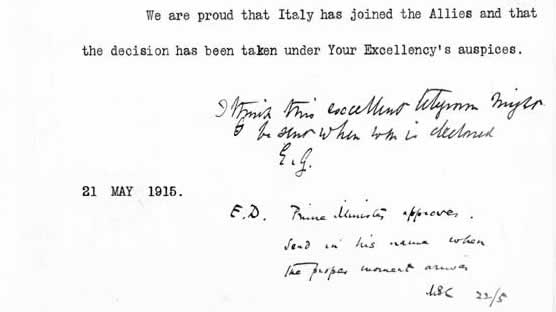 We are proud that Italy has joined the Allies and that
the decision has been taken under Your Excellency's auspices.
I think this excellent telegram might
be sent when war is declared
E.G.
21 MAY 1915.
E.D. Prime Minister approves.
Send in his name when
the proper moment arrives
22/5